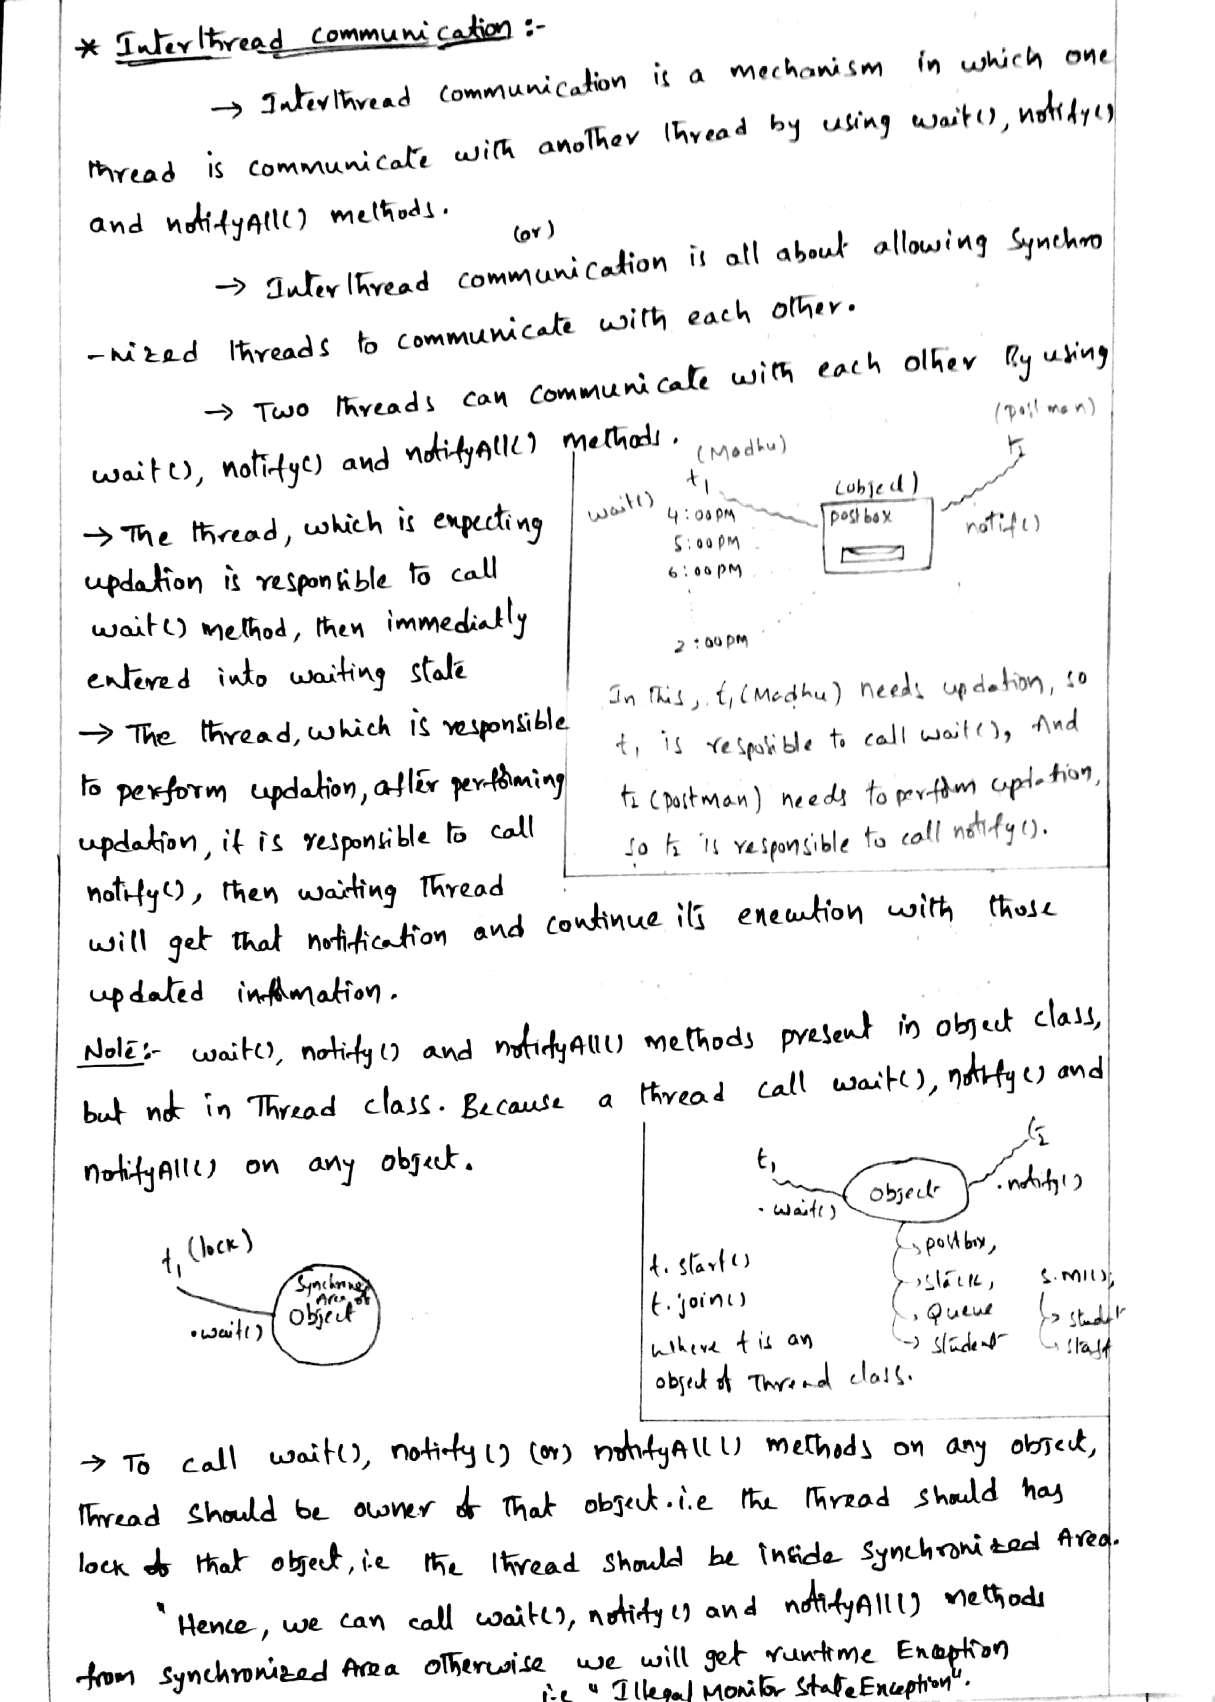 * Interthread communication :-
→ Interthread communication is a mechanism in which one
thread is communicate with another thread by using wait(), notify()
and notifyAll() methods.
(or)
→ Interthread communication is all about allowing Synchro
-nized threads to communicate with each other.
→ Two threads can communicate with each other By using
wait(), notify() and notifyAll() methods.
→ The thread, which is expecting
updation is responsible to call
wait() method, then immediatly
entered into waiting state
→ The thread, which is responsible
to perform updation, after performing
updation, it is responsible to call
notify(), then waiting Thread
will get that notification and continue its execution with those
updated information.
(Madhu)
t1
wait()
4:00PM
5:00PM
6:00PM
2:00PM
(object)
postbox
(postman)
t2
notif()
In this, t1(Madhu) needs updation, so
t1 is resposible to call wait(), And
t2 (postman) needs to perform updation,
so t2 is responsible to call notify().
Note:- wait(), notify() and notifyAll() methods present in object class,
but not in Thread class. Because a thread call wait(), notify() and
notifyAll() on any object.
t1 (lock)
.wait()
Area of
Object
t1
.wait()
object
t2
.notify()
postbox,
stack,
Queue
student
s.m1();
student
t.start()
t.join()
where t is an
object of Thread class.
→ To call wait(), notify() (or) notifyAll() methods on any object,
thread should be owner of that object.i.e the thread should has
lock of that object, i.e the thread should be inside synchronized Area.
" Hence, we can call wait(), notify() and notifyAll() methods
from synchronized Area otherwise we will get runtime Exception
i.e " Illegal Monitor State Exception".